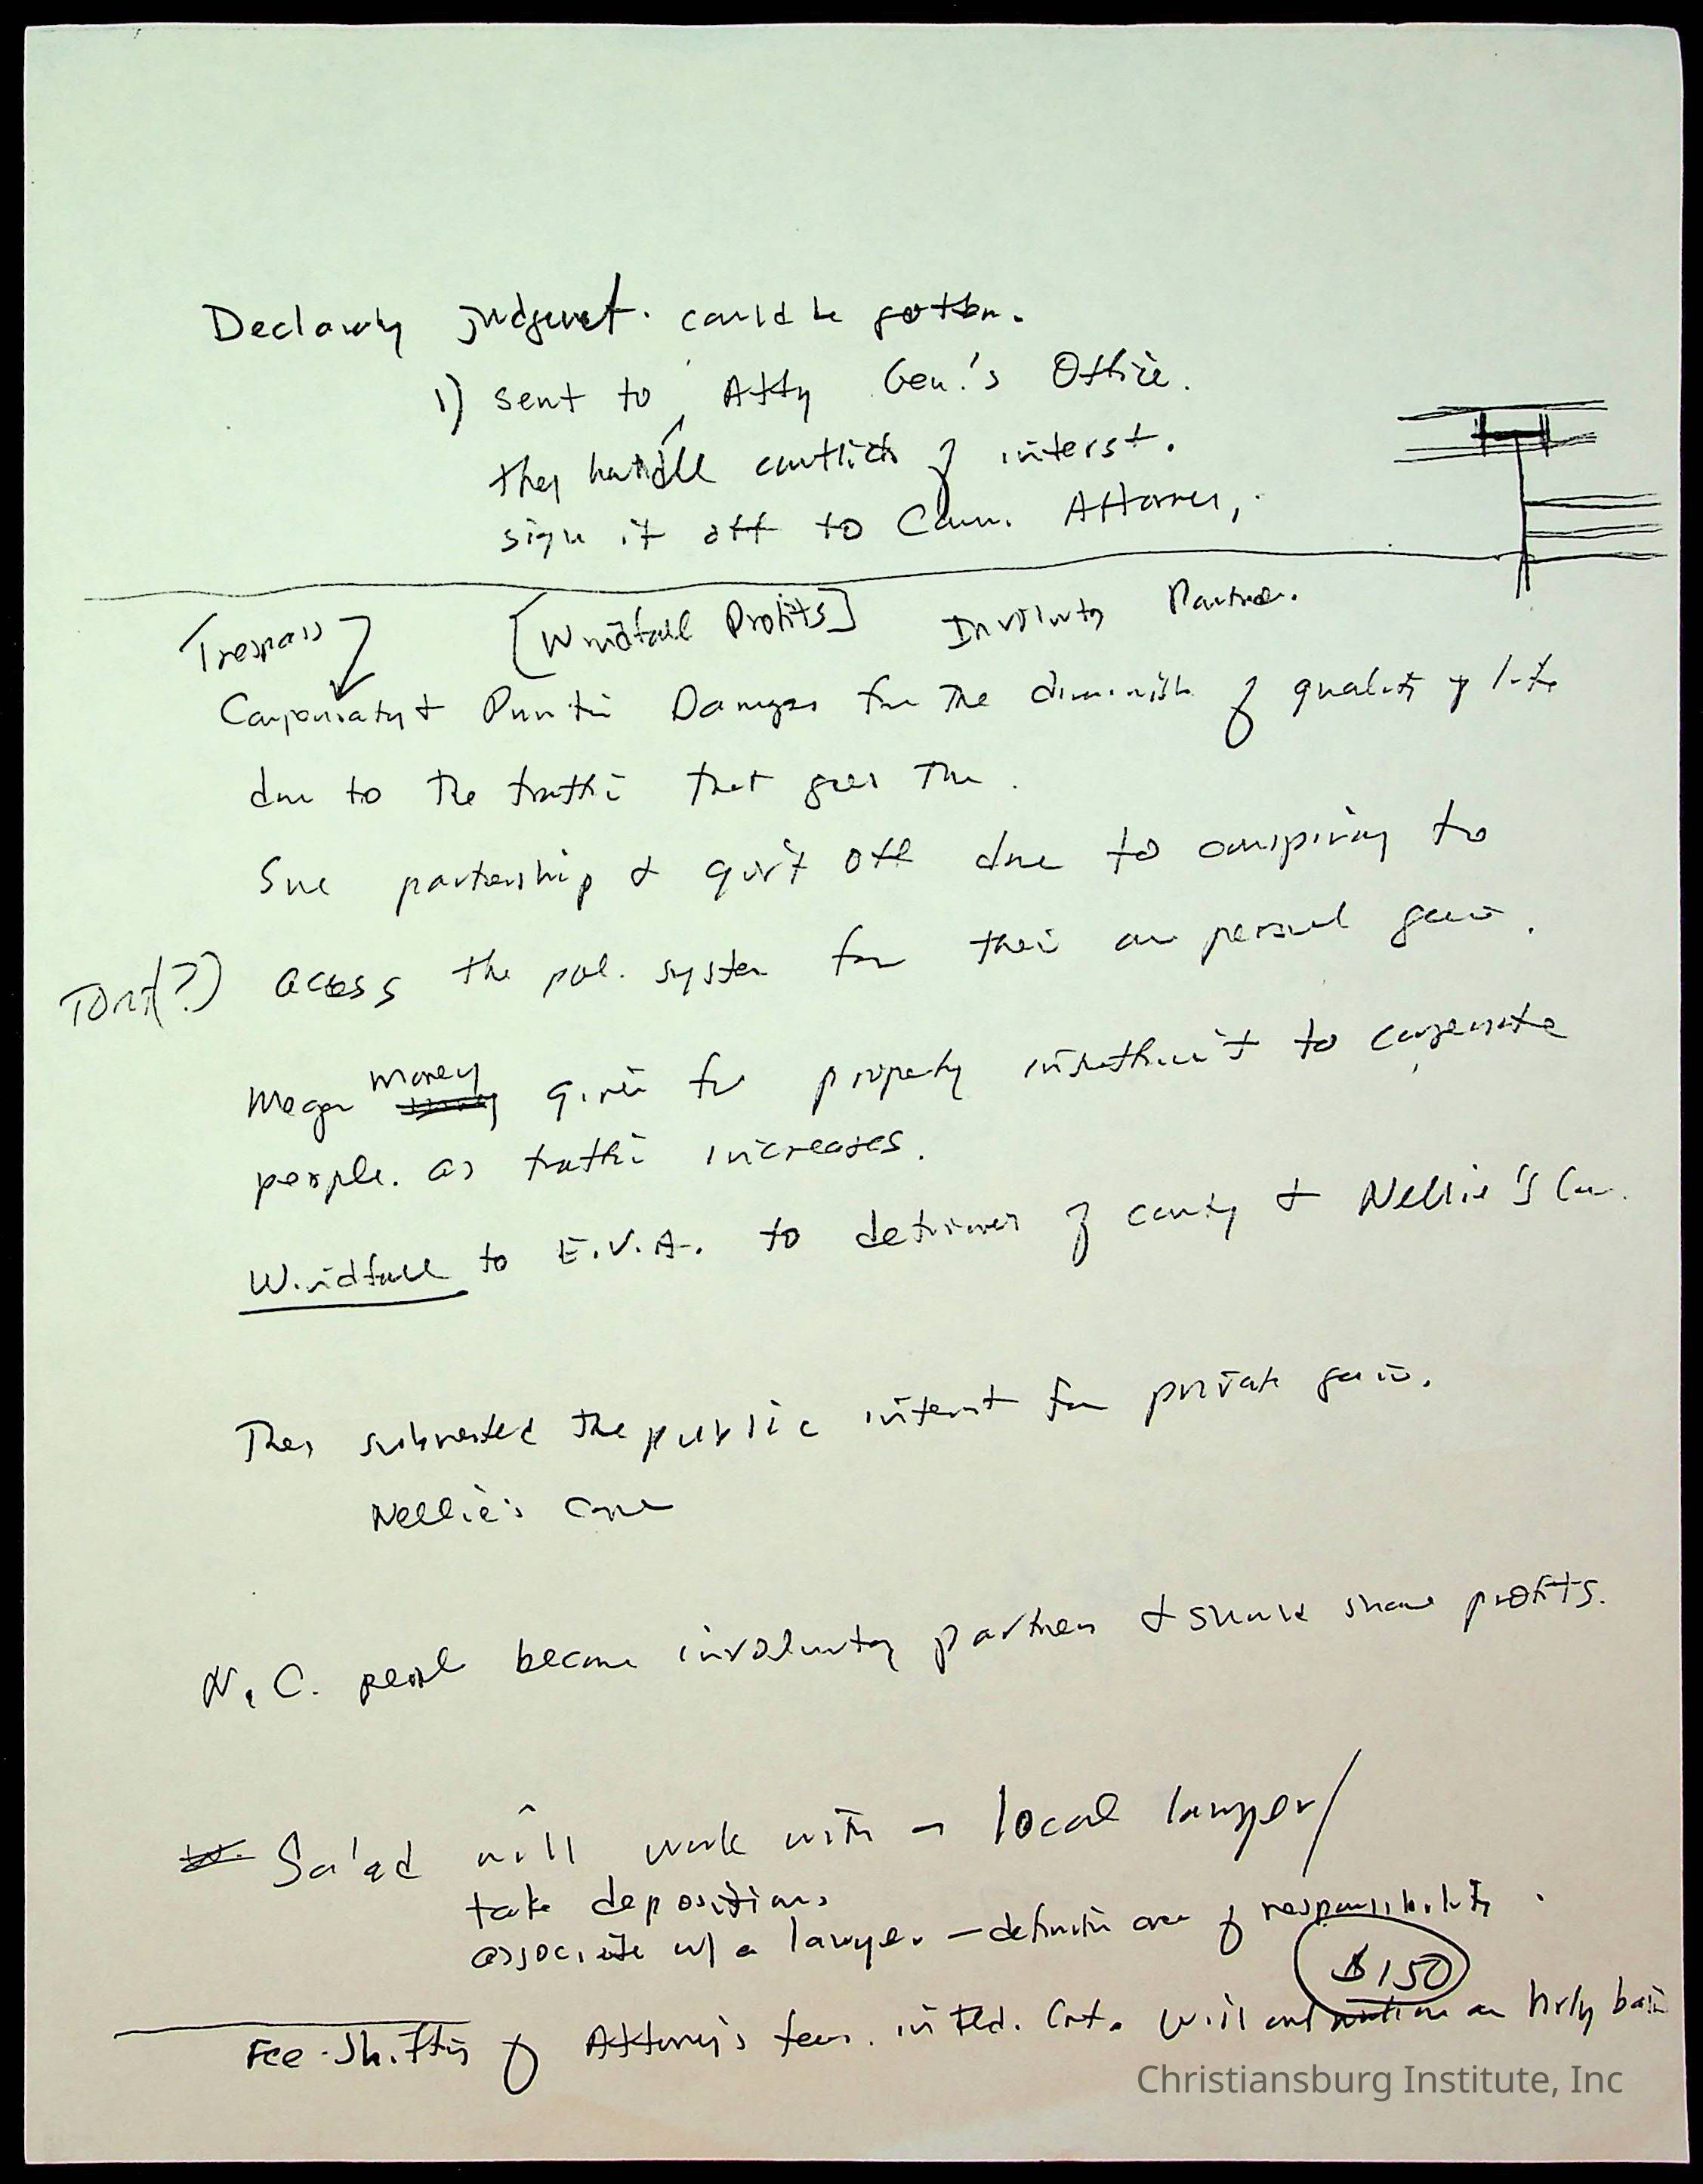 Declaratory judgment. could be gotten.
1) sent to Atty Gen.'s Office.
they handle conflicts of interst.
sign it off to Com. Attorney,
Trespass [Windfall Profits] Involunty Partner.
Compensatory & Punitive Damages for the diminish of quality of life
due to the traffic that goes thru.
Sue partnership & gov't off due to conspiring to
Tort(?) access the pol. system for their own personal gain.
Mega money given for property insufficient to compensate
people. as traffic increases.
Windfall to E.V.A. to detriment of county & Nellie's Cave.
They subverted the public interest for private gain.
Nellie's Cave
N.C. people become involuntary partners & should share profits.
Sa'ad will work with a local lawyer/
take depositions
associate w/ a lawyer - definite area of responsibility.
$150
Fee-Shifting of Attorney's fees. in Fed. Crt. will on hrly basis
Christiansburg Institute, Inc